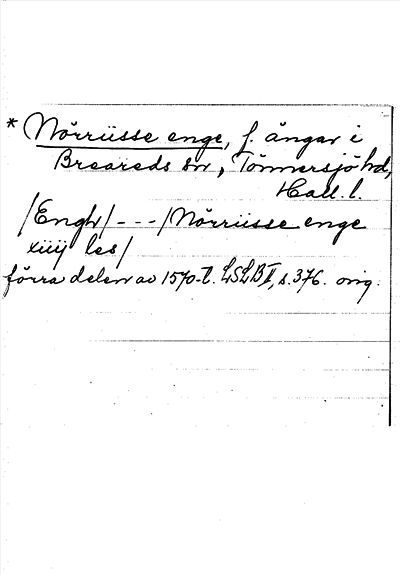 * Nörriisse enge, f. ängar i
Breareds sn, Tönnersjö hd,
Hall. l.
/Engh/ - - - /Nörriisse enge
xiiij les/
förra delen av 1570-t. LSLB II, s. 376. orig.